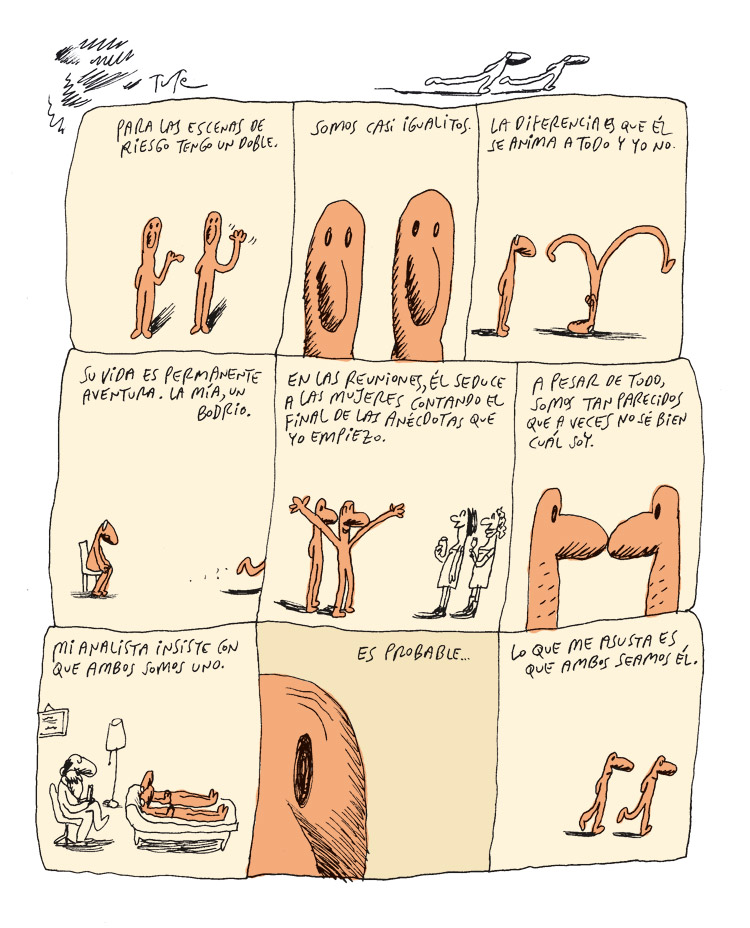 TUTE
PARA LAS ESCENAS DE
RIESGO TENGO UN DOBLE.
SOMOS CASI IGUALITOS.
LA DIFERENCIA ES QUE ÉL
SE ANIMA A TODO Y YO NO.
SU VIDA ES PERMANENTE
AVENTURA. LA MÍA, UN
BODRIO.
EN LAS REUNIONES, ÉL SEDUCE
A LAS MUJERES CONTANDO EL
FINAL DE LAS ANÉCDOTAS QUE
YO EMPIEZO.
A PESAR DE TODO,
SOMOS TAN PARECIDOS
QUE A VECES NO SÉ BIEN
CUÁL SOY.
MI ANALISTA INSISTE CON
QUE AMBOS SOMOS UNO.
ES PROBABLE...
LO QUE ME ASUSTA ES
QUE AMBOS SEAMOS ÉL.